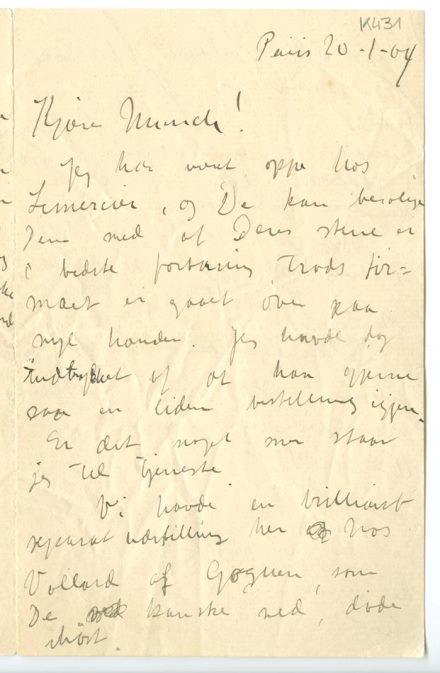 K431
Paris 20-1-04
Kjære Munch!
Jeg har vært oppe hos
Lemercier, og De kan berolige
Dem med at Deres stene er
i bedste forfatning trods fir=
maet er gaaet over paa
nye hænder. Jeg havde dog
Indtrykket af at han gjerne
saa en liden bestilling igjen.
Er det noget mer staar
jeg til tjeneste.
Vi havde en brilliant
separat udstilling her hos
Vollard af Goguen, som
De kanske ved, døde
ihøst.